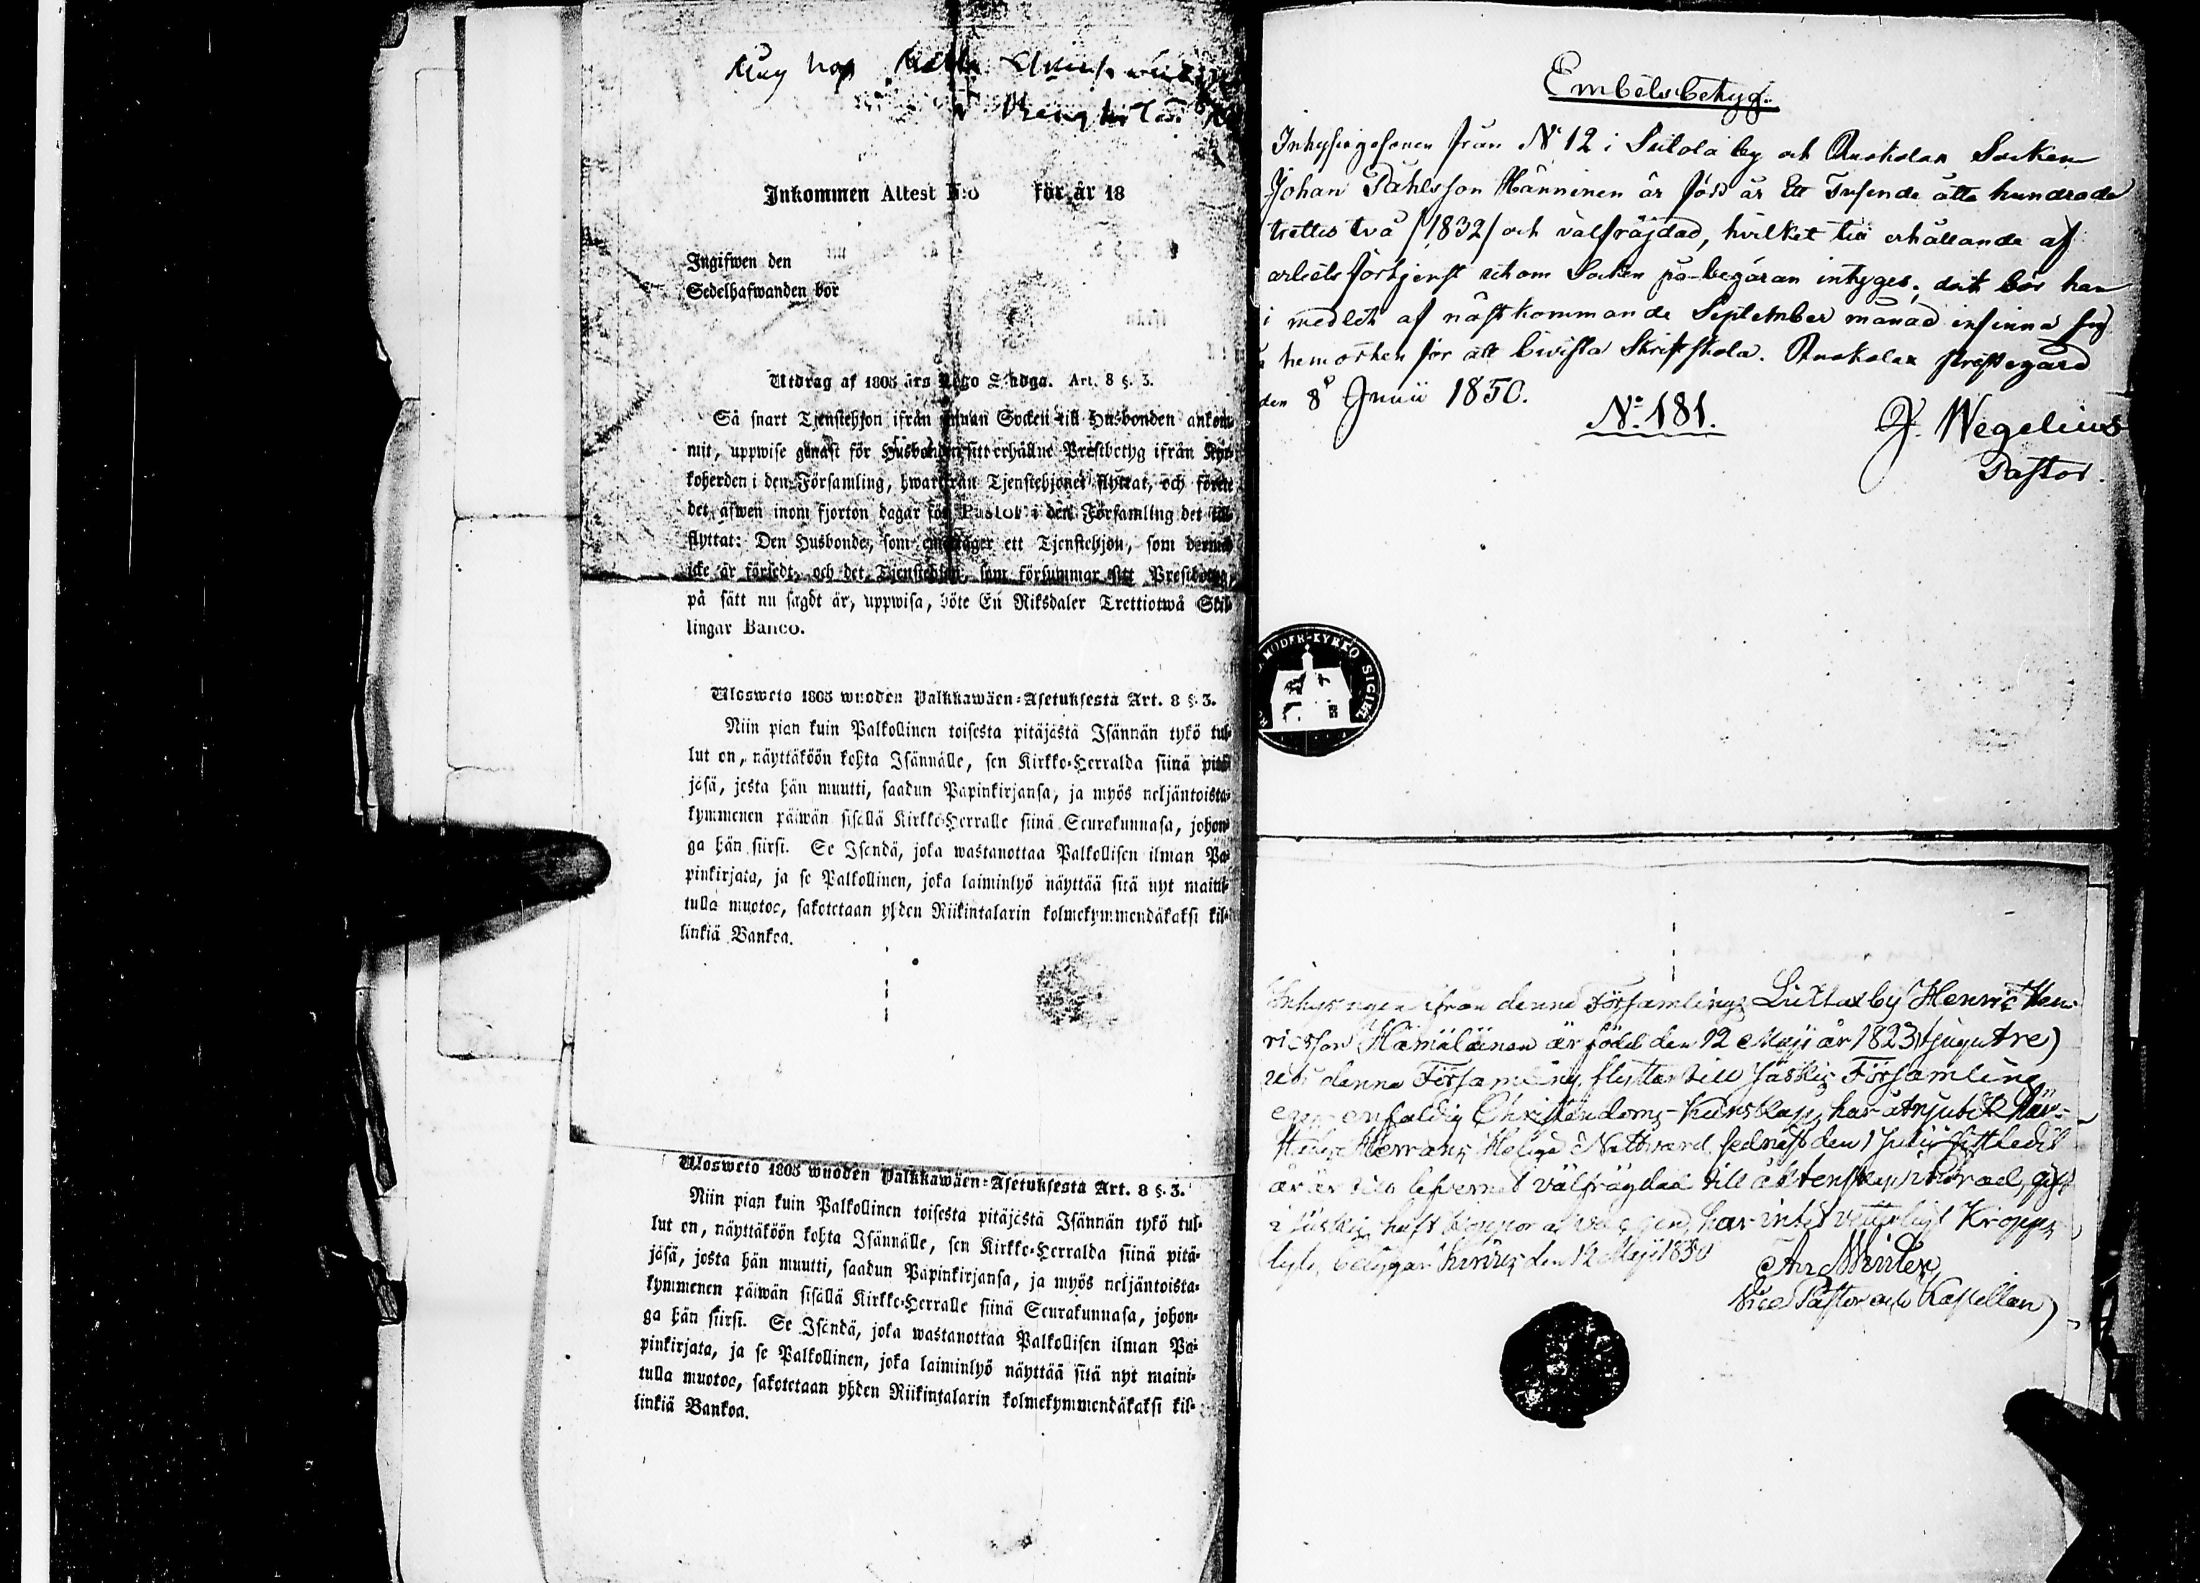 Inkommen Attest N:o för år 18
Ingifwen den
Sedelhafwanden bor
Utdrag af 1805 års Lego Stadga. Art. 8 §. 3.
Så snart Tjenstehjon ifrån annan Socken till Husbonden ankom-
mit, uppwise genast för Husbonden sitt erhållne Prestbetyg ifrån Kyr-
koherden i den Församling, hwarifrån Tjenstehjonet flyttat, och förete
det äfwen inom fjorton dagar för Pastor i den Församling det till-
flyttat: Den Husbonde, som emottager ett Tjenstehjon, som dermed
icke är försedt, och det Tjenstehjon, som försummar sitt Prestbetyg,
på sätt nu sagdt är, uppwisa, böte En Riksdaler Trettiotwå Skil-
lingar Banco.
Ulosweto 1805 wuoden Palkkawäen-Asetuksesta Art. 8 §. 3.
Niin pian kuin Palkollinen toisesta pitäjästä Isännän tykö tul-
lut on, näyttäköön kohta Isännälle, sen Kirkko-Herralda siinä pitä-
jäsä, josta hän muutti, saadun Papinkirjansa, ja myös neljäntoista-
kymmenen päiwän sisällä Kirkko-Herralle siinä Seurakunnasa, johon-
ga hän siirsi. Se Isendä, joka wastanottaa Palkollisen ilman Pa-
pinkirjata, ja se Palkollinen, joka laiminlyö näyttää sitä nyt maini-
tulla muotoa, sakotetaan yhden Riikintalarin kolmekymmendäkaksi kil-
linkiä Bankoa.
Ulosweto 1805 wuoden Palkkawäen-Asetuksesta Art. 8 §. 3.
Niin pian kuin Palkollinen toisesta pitäjästä Isännän tykö tul-
lut on, näyttäköön kohta Isännälle, sen Kirkko-Herralda siinä pitä-
jäsä, josta hän muutti, saadun Papinkirjansa, ja myös neljäntoista-
kymmenen päiwän sisällä Kirkko-Herralle siinä Seurakunnasa, johon-
ga hän siirsi. Se Isendä, joka wastanottaa Palkollisen ilman Pa-
pinkirjata, ja se Palkollinen, joka laiminlyö näyttää sitä nyt maini-
tulla muotoa, sakotetaan yhden Riikintalarin kolmekymmendäkaksi kil-
linkiä Bankoa.
Embetsbetyg.
Inhysingesonen från N:o 12 i Suitola by och Ruokolax Socken
Johan Påhlsson Hänninen är född år Ett Tusende åtta hundrade
trettio två /1832/ och välfräjdad, hvilket till erhållande af
arbetsförtjenst utom Socken på begäran intyges; dock bör han
i medlet af nästkommande September månad infinna sig
i hemorten för att bivista Skriftskola. Ruokolax prästegård
den 8 Junii 1850.
N:o 181.
J. Wegelius
Pastor.
MODER-KYRKO SIGILL
Inhysingen ifrån denna Församlings by Henric Hen-
ricsson Hämäläinen är född den 12 Maji år 1823 (tjugutre)
denna Församling, flyttar till Jäskis Församling
enfaldig Christendoms-Kunskap, har åtnjutit
Herrans Heliga Nattvard sednast den 1 Julii sistledit
år, är till lefvernet välfrägdad, till äktenskap gift
i Jäskis, haft koppor, har intet veterligt Kropps
lyte, betygar den 12 Maji 1850
Vice Pastor och Kapellan